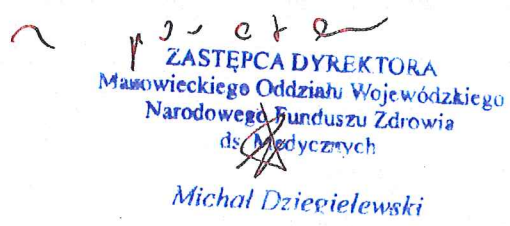 ZASTĘPCA DYREKTORA
Mazowieckiego Oddziału Wojewódzkiego
Narodowego Funduszu Zdrowia
ds. Medycznych
Michał Dzięgielewski